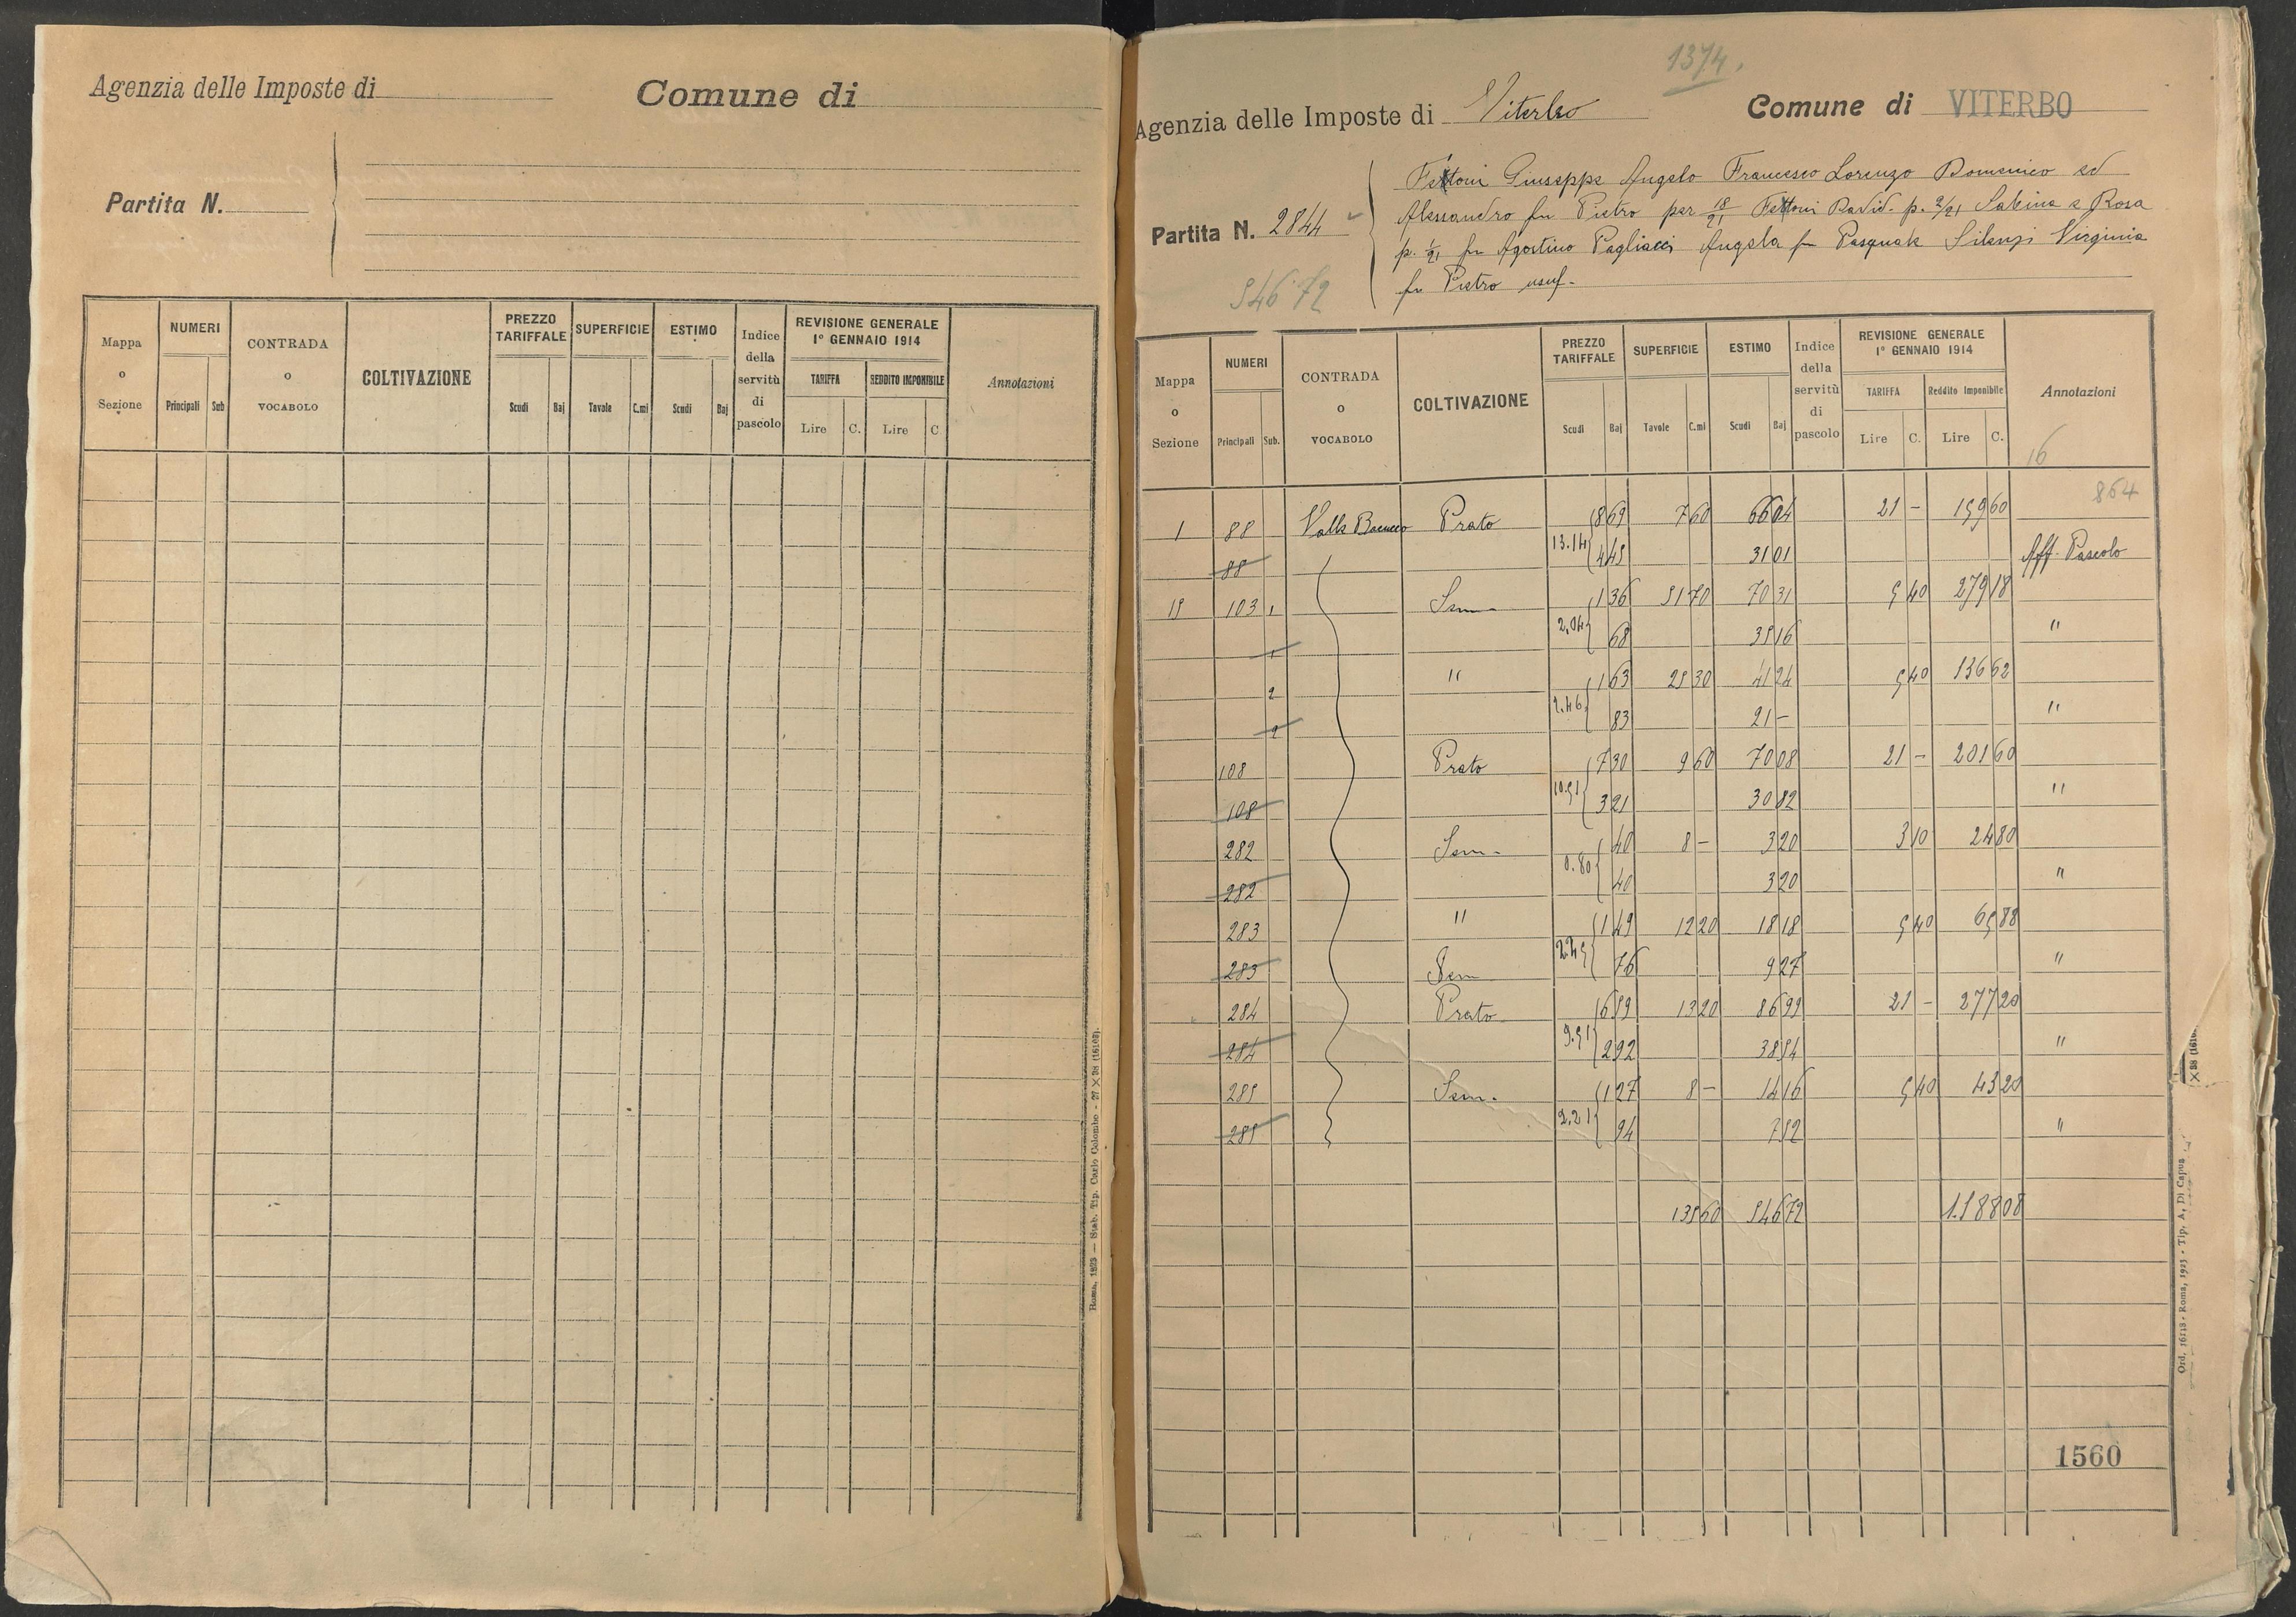 Agenzia delle Imposte di
Comune di
Partita N.
Mappa o Sezione
NUMERI
Principali
Sub
CONTRADA o VOCABOLO
COLTIVAZIONE
PREZZO TARIFFALE
Scudi
Baj
SUPERFICIE
Tavole
C.mi
ESTIMO
Scudi
Baj
Indice della servitù di pascolo
REVISIONE GENERALE
1° GENNAIO 1914
TARIFFA
REDDITO IMPONIBILE
Lire
C.
Lire
C
Annotazioni
Roma, 1923 — Stab. Tip. Carlo Colombo - 27 × 38 (16103).
1374.
Agenzia delle Imposte di Viterbo
Comune di VITERBO
Partita N. 2844
546 72
Fettoni Giuseppe Angelo Francesco Lorenzo Domenico ed
Alessandro fu Pietro per 18/21 Fettoni David. p. 2/21 Sabina e Rosa
p. 1/21 fu Agostino Pagliacci Angela fu Pasquale Silenzi Virginia
fu Pietro usuf.
Mappa o Sezione
NUMERI
Principali
Sub.
CONTRADA o VOCABOLO
COLTIVAZIONE
PREZZO TARIFFALE
Scudi
Baj
SUPERFICIE
Tavole
C.mi
ESTIMO
Scudi
Baj
Indice della servitù di pascolo
REVISIONE GENERALE
1° GENNAIO 1914
TARIFFA
Reddito Imponibile
Lire
C.
Lire
C.
Annotazioni
16
864
1 88 Valle Prato 8 69 7 60 66 04 21 - 159 60
88 13.14 4 45 31 01 Aff. Pascolo
15 103 1 Sem 1 36 51 70 70 31 5 40 279 18
1 2.04 68 35 16 "
2 " 1 63 25 30 41 24 5 40 136 62
2 2.46 83 21 - "
108 Prato 7 30 9 60 70 08 21 - 201 60
108 10.51 3 21 30 82 "
282 Sem. 40 8 - 3 20 3 10 24 80
282 0.80 40 3 20 "
283 " 1 49 12 20 18 18 5 40 65 88
283 Sem 2.25 76 9 27 "
284 Prato 6 59 13 20 86 99 21 - 277 20
284 9.51 2 92 38 54 "
285 Sem. 1 27 8 - 14 16 5 40 43 20
285 2.21 94 7 52 "
135 60 546 72 1.188 08
1560
Ord. 16113 - Roma, 1925 - Tip. A. Di Capua
× 38 (1610